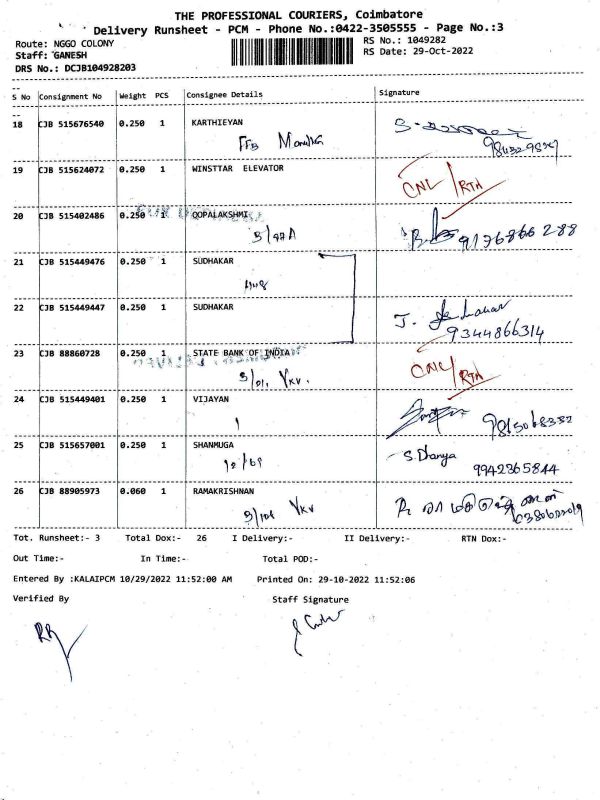 THE PROFESSIONAL COURIERS, Coimbatore
Delivery Runsheet - PCM - Phone No.:0422-3505555 - Page No.:3
Route: NGGO COLONY RS No.: 1049282
Staff: GANESH RS Date: 29-Oct-2022
DRS No.: DCJB104928203
S No Consignment No Weight PCS Consignee Details Signature
18 CJB 515676540 0.250 1 KARTHIEYAN
19 CJB 515624072 0.250 1 WINSTTAR ELEVATOR
CNL/RTN
20 CJB 515402486 0.250 1 OOPALAKSHMI
3/47A 9176866288
21 CJB 515449476 0.250 1 SUDHAKAR
22 CJB 515449447 0.250 1 SUDHAKAR
9344866314
23 CJB 88860728 0.250 1 STATE BANK OF INDIA
CNL/RTN
24 CJB 515449401 0.250 1 VIJAYAN
25 CJB 515657001 0.250 1 SHANMUGA
S. Dhanya
12/69 9942365844
26 CJB 88905973 0.060 1 RAMAKRISHNAN
Tot. Runsheet:- 3 Total Dox:- 26 I Delivery:- II Delivery:- RTN Dox:-
Out Time:- In Time:- Total POD:-
Entered By :KALAIPCM 10/29/2022 11:52:00 AM Printed On: 29-10-2022 11:52:06
Verified By Staff Signature